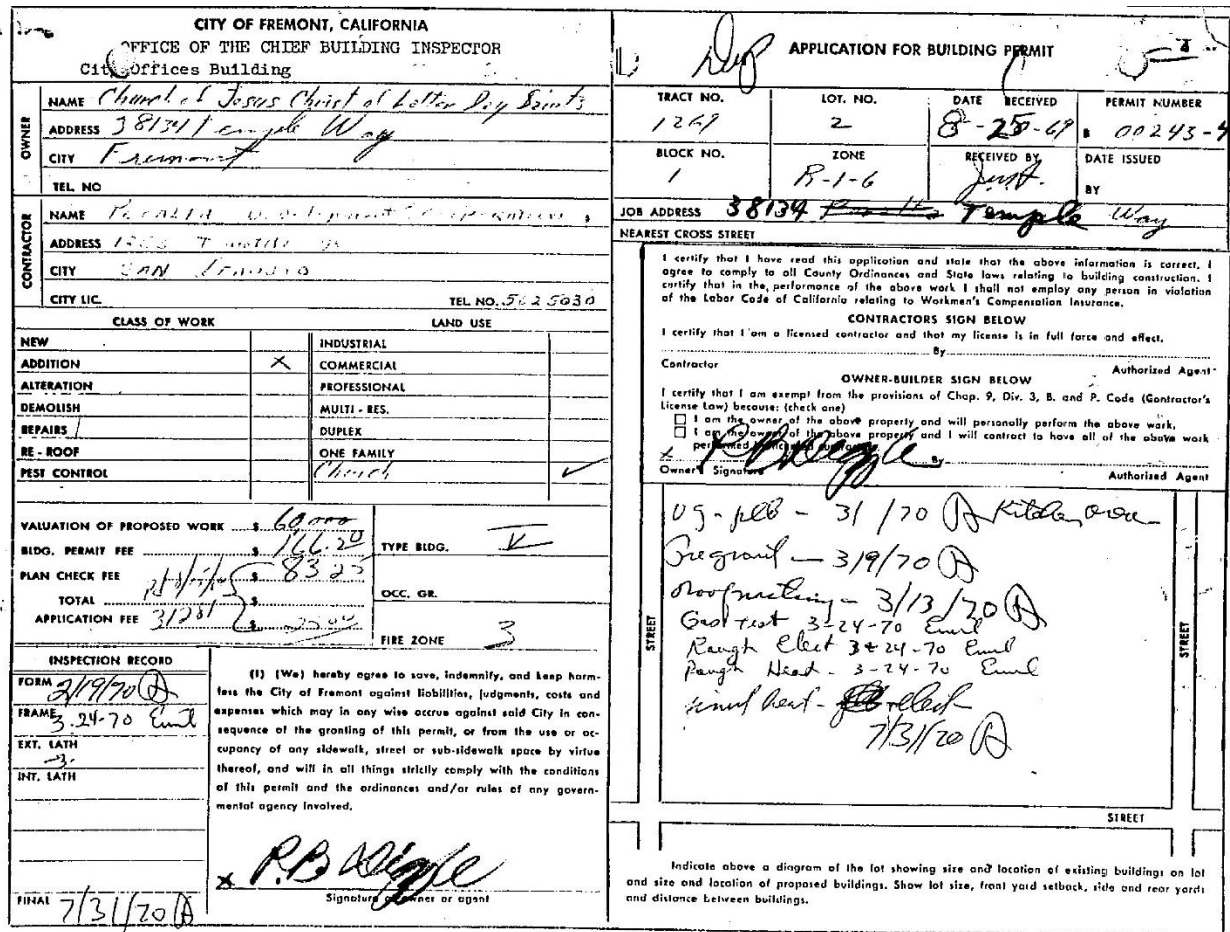 CITY OF FREMONT, CALIFORNIA
OFFICE OF THE CHIEF BUILDING INSPECTOR
City Offices Building
OWNER
NAME Church of Jesus Christ of Latter Day Saints
ADDRESS 38134 Temple Way
CITY Fremont
TEL. NO
CONTRACTOR
NAME
ADDRESS
CITY SAN
CITY LIC. TEL. NO. 5625030
CLASS OF WORK LAND USE
NEW INDUSTRIAL
ADDITION X COMMERCIAL
ALTERATION PROFESSIONAL
DEMOLISH MULTI - RES.
REPAIRS DUPLEX
RE - ROOF ONE FAMILY
PEST CONTROL Church ✓
VALUATION OF PROPOSED WORK $ 60,000
BLDG. PERMIT FEE $ 166.20 TYPE BLDG. V
PLAN CHECK FEE $ 83 25
TOTAL $ OCC. GR.
APPLICATION FEE $
FIRE ZONE 3
INSPECTION RECORD
FORM 2/19/70 A
FRAME 3-24-70 Emil
EXT. LATH
INT. LATH
FINAL 7/31/70 A
(I) (We) hereby agree to save, indemnify, and keep harm-
less the City of Fremont against liabilities, judgments, costs and
expenses which may in any wise accrue against said City in con-
sequence of the granting of this permit, or from the use or oc-
cupancy of any sidewalk, street or sub-sidewalk space by virtue
thereof, and will in all things strictly comply with the conditions
of this permit and the ordinances and/or rules of any govern-
mental agency involved.
X
Signature of owner or agent
APPLICATION FOR BUILDING PERMIT
TRACT NO. LOT. NO. DATE RECEIVED PERMIT NUMBER
1269 2 8-25-69 00243-4
BLOCK NO. ZONE RECEIVED BY DATE ISSUED
1 R-1-6 BY
JOB ADDRESS 38134 Temple Way
NEAREST CROSS STREET
I certify that I have read this application and state that the above information is correct. I
agree to comply to all County Ordinances and State laws relating to building construction. I
certify that in the performance of the above work I shall not employ any person in violation
of the Labor Code of California relating to Workmen's Compensation Insurance.
CONTRACTORS SIGN BELOW
I certify that I am a licensed contractor and that my license is in full force and effect.
By
Contractor Authorized Agent
OWNER-BUILDER SIGN BELOW
I certify that I am exempt from the provisions of Chap. 9, Div. 3, B. and P. Code (Contractor's
License Law) because: (check one)
I am the owner of the above property and will personally perform the above work,
I am the owner of the above property and I will contract to have all of the above work
performed
X By
Owner's Signature Authorized Agent
3/9/70 A
3/13/70 A
Gas test 3-24-70 Emil
Rough Elect 3-24-70 Emil
Rough Heat - 3-24-70 Emil
final heat - elect
7/31/70 A
STREET
STREET
STREET
Indicate above a diagram of the lot showing size and location of existing buildings on lot
and size and location of proposed buildings. Show lot size, front yard setback, side and rear yards
and distance between buildings.